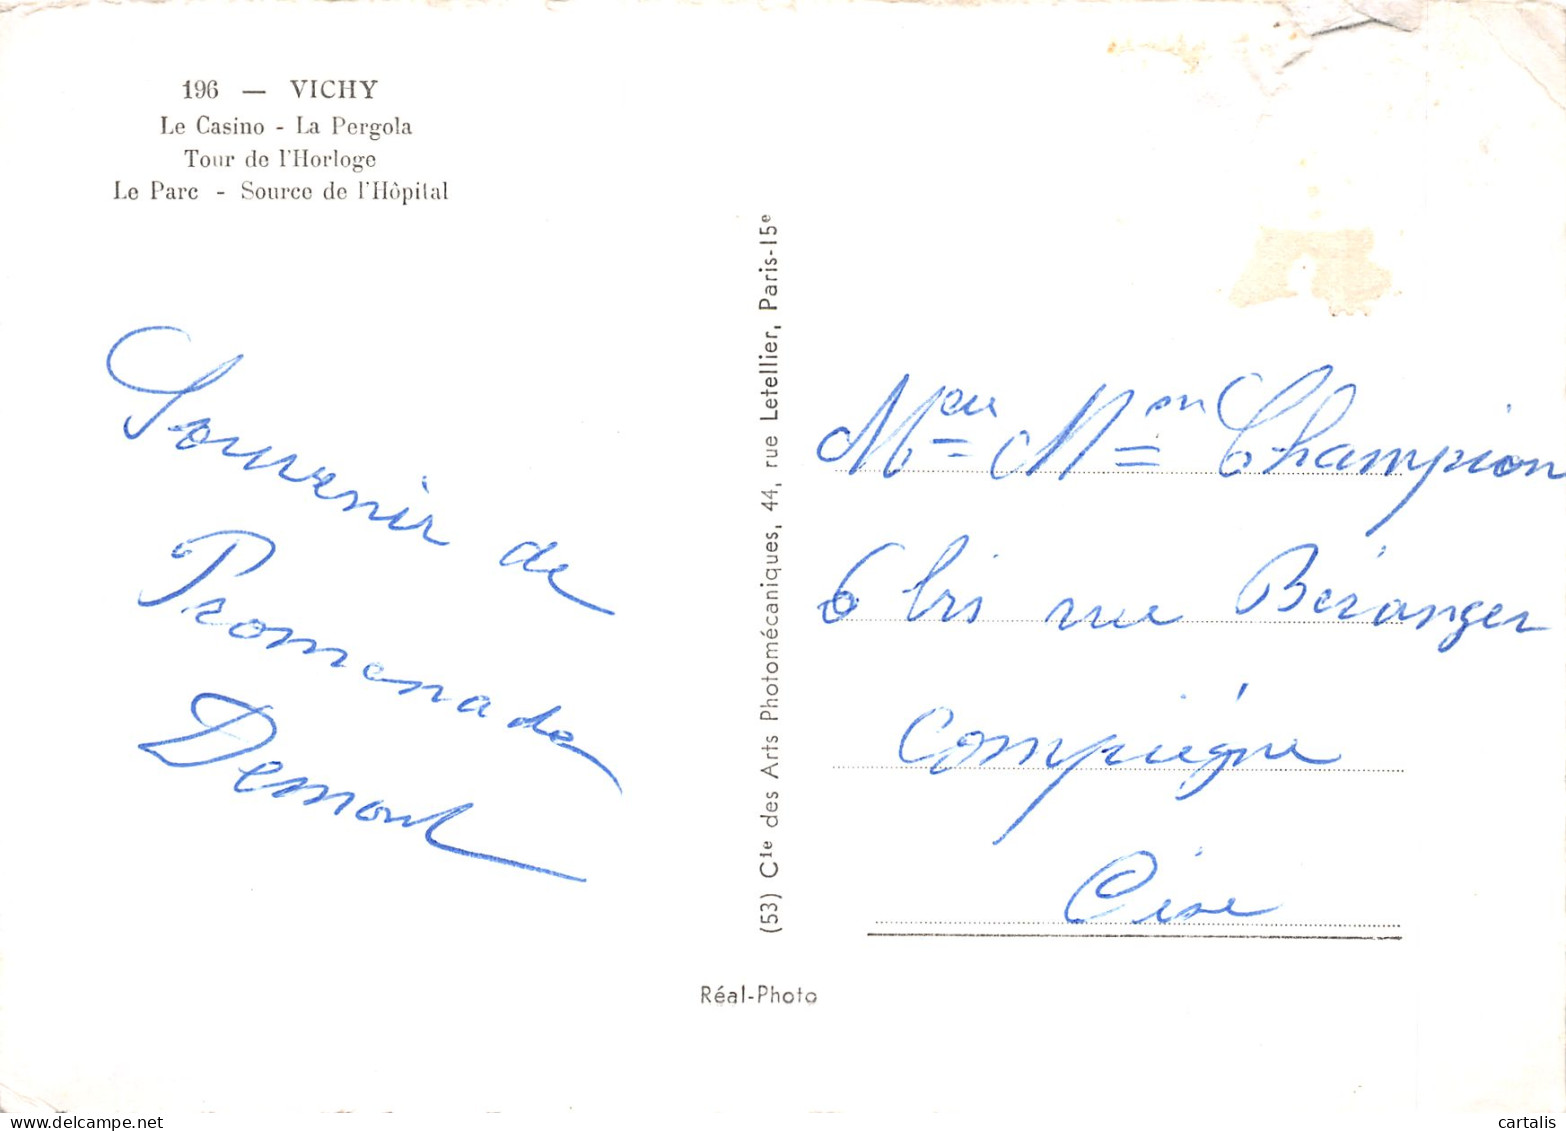 196 — VICHY
Le Casino - La Pergola
Tour de l'Horloge
Le Parc - Source de l'Hôpital
Souvenir de
Promenade
Demont
(53) Cie des Arts Photomécaniques, 44, rue Letellier, Paris-15e
Réal-Photo
Meur Men Champion
6 bis rue Béranger
Compiègne
Oise
www.delcampe.net
cartalis